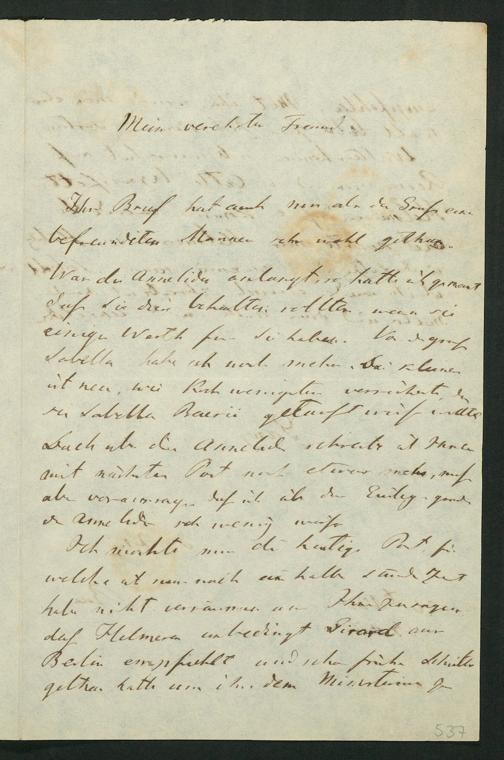 Mein verehrter Freund
Ihr Brief hat auch mir als der Gruß eines
befreundeten Mannes sehr wohl gethan.
Was die Anneliden anlangt so hatte ich gemeint
daß Sie dieselben behalten sollten, wenn sie
einigen Werth für Sie haben. Von der großen
Sabella habe ich noch mehr. Die kleine
ist neu, wie Koch wenigstens versicherte, der
sie Sabella Baerii getauft wissen wollte
Doch über die Anneliden schreibe ich Ihnen
mit nächster Post noch etwas mehr, muß
aber voraussagen, daß ich über den
die Anneliden sehr wenig weiß.
Ich möchte nur die heutige Post für
welche ich nur noch eine halbe Stunde Zeit
habe nicht versäumen um Ihnen zu sagen
daß Helmersen unbedingt Girard aus
Berlin empfiehlt und schon früher Schritte
gethan hatte um ihn dem Ministerium zu
537